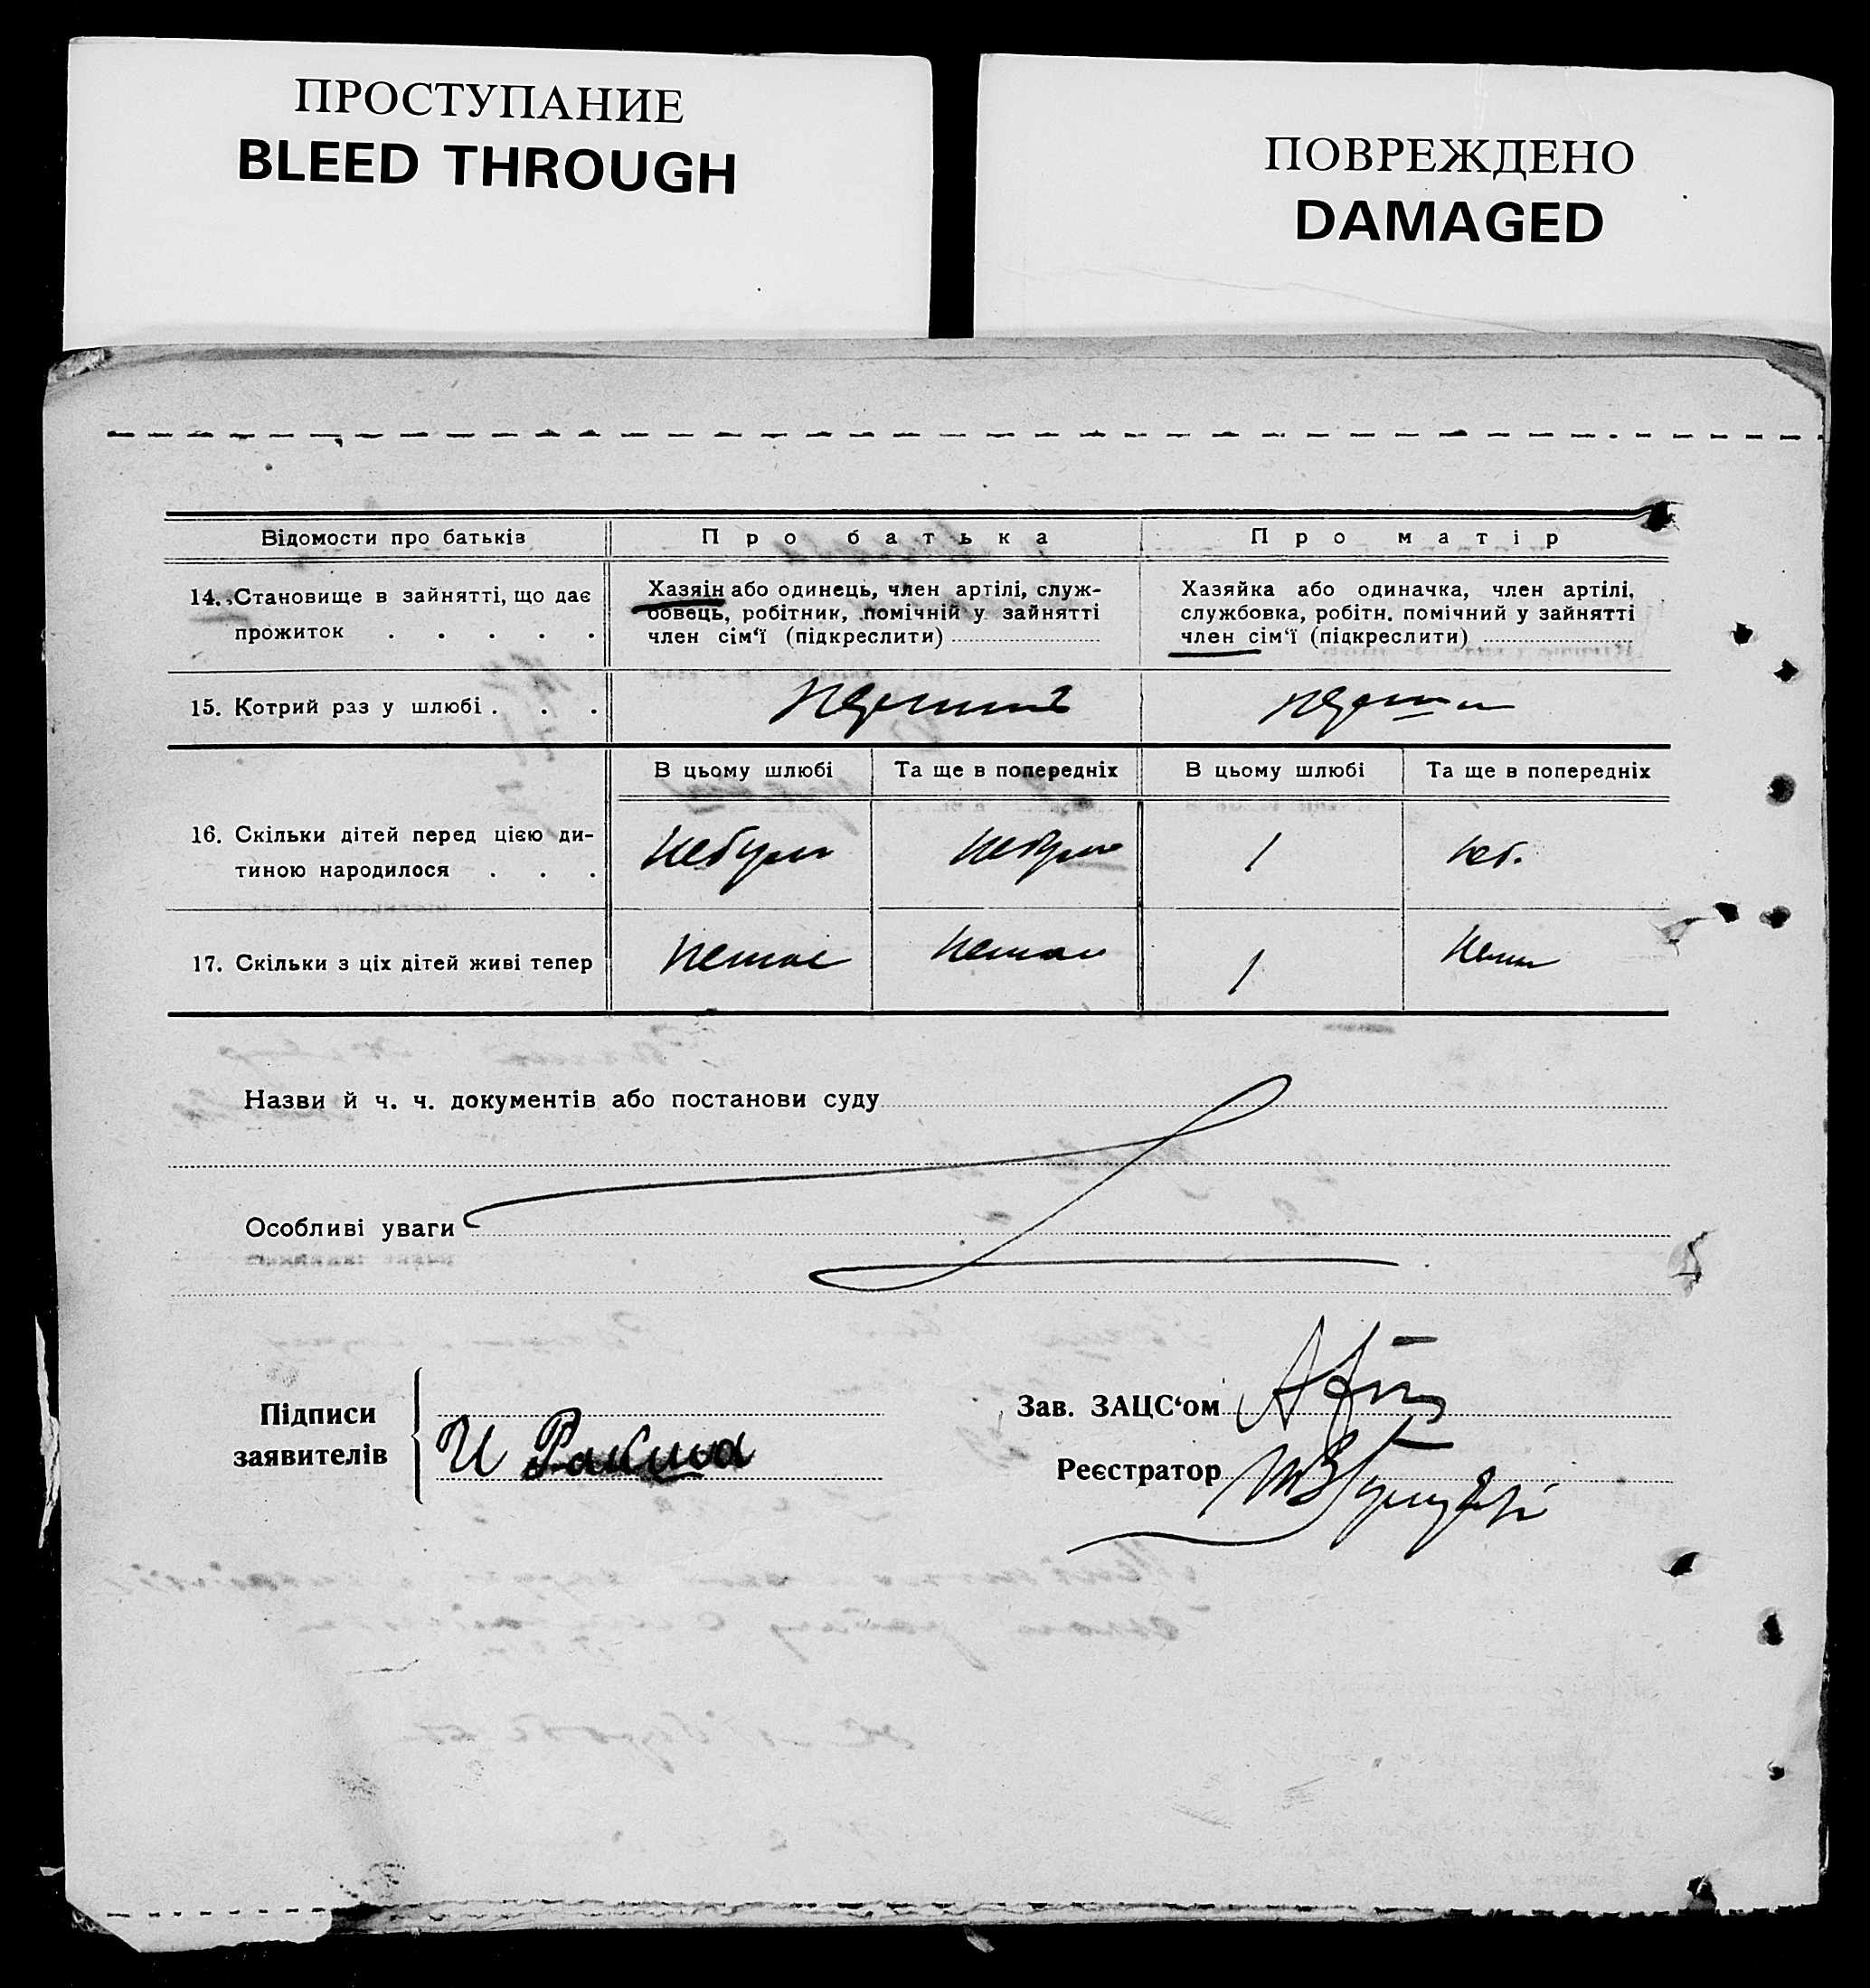 ПРОСТУПАНИЕ
BLEED THROUGH
ПОВРЕЖДЕНО
DAMAGED
Відомости про батьків
Про батька
Про матір
14. Становище в зайнятті, що дає
прожиток . . . . .
Хазяін або одинець, член артілі, служ-
бовець, робітник, помічній у зайнятті
член сім‘ї (підкреслити)
Хазяйка або одиначка, член артілі,
службовка, робітн. помічний у зайнятті
член сім‘ї (підкреслити)
15. Котрий раз у шлюбі . . .
В цьому шлюбі
Та ще в попередніх
В цьому шлюбі
Та ще в попередніх
16. Скільки дітей перед цією ди-
тиною народилося . . .
небуло
небуло
1
неб.
17. Скільки з ціх дітей живі тепер
немає
немає
1
Назви й ч. ч. документів або постанови суду
Особливі уваги
Підписи
заявителів
Зав. ЗАЦС‘ом
Реєстратор